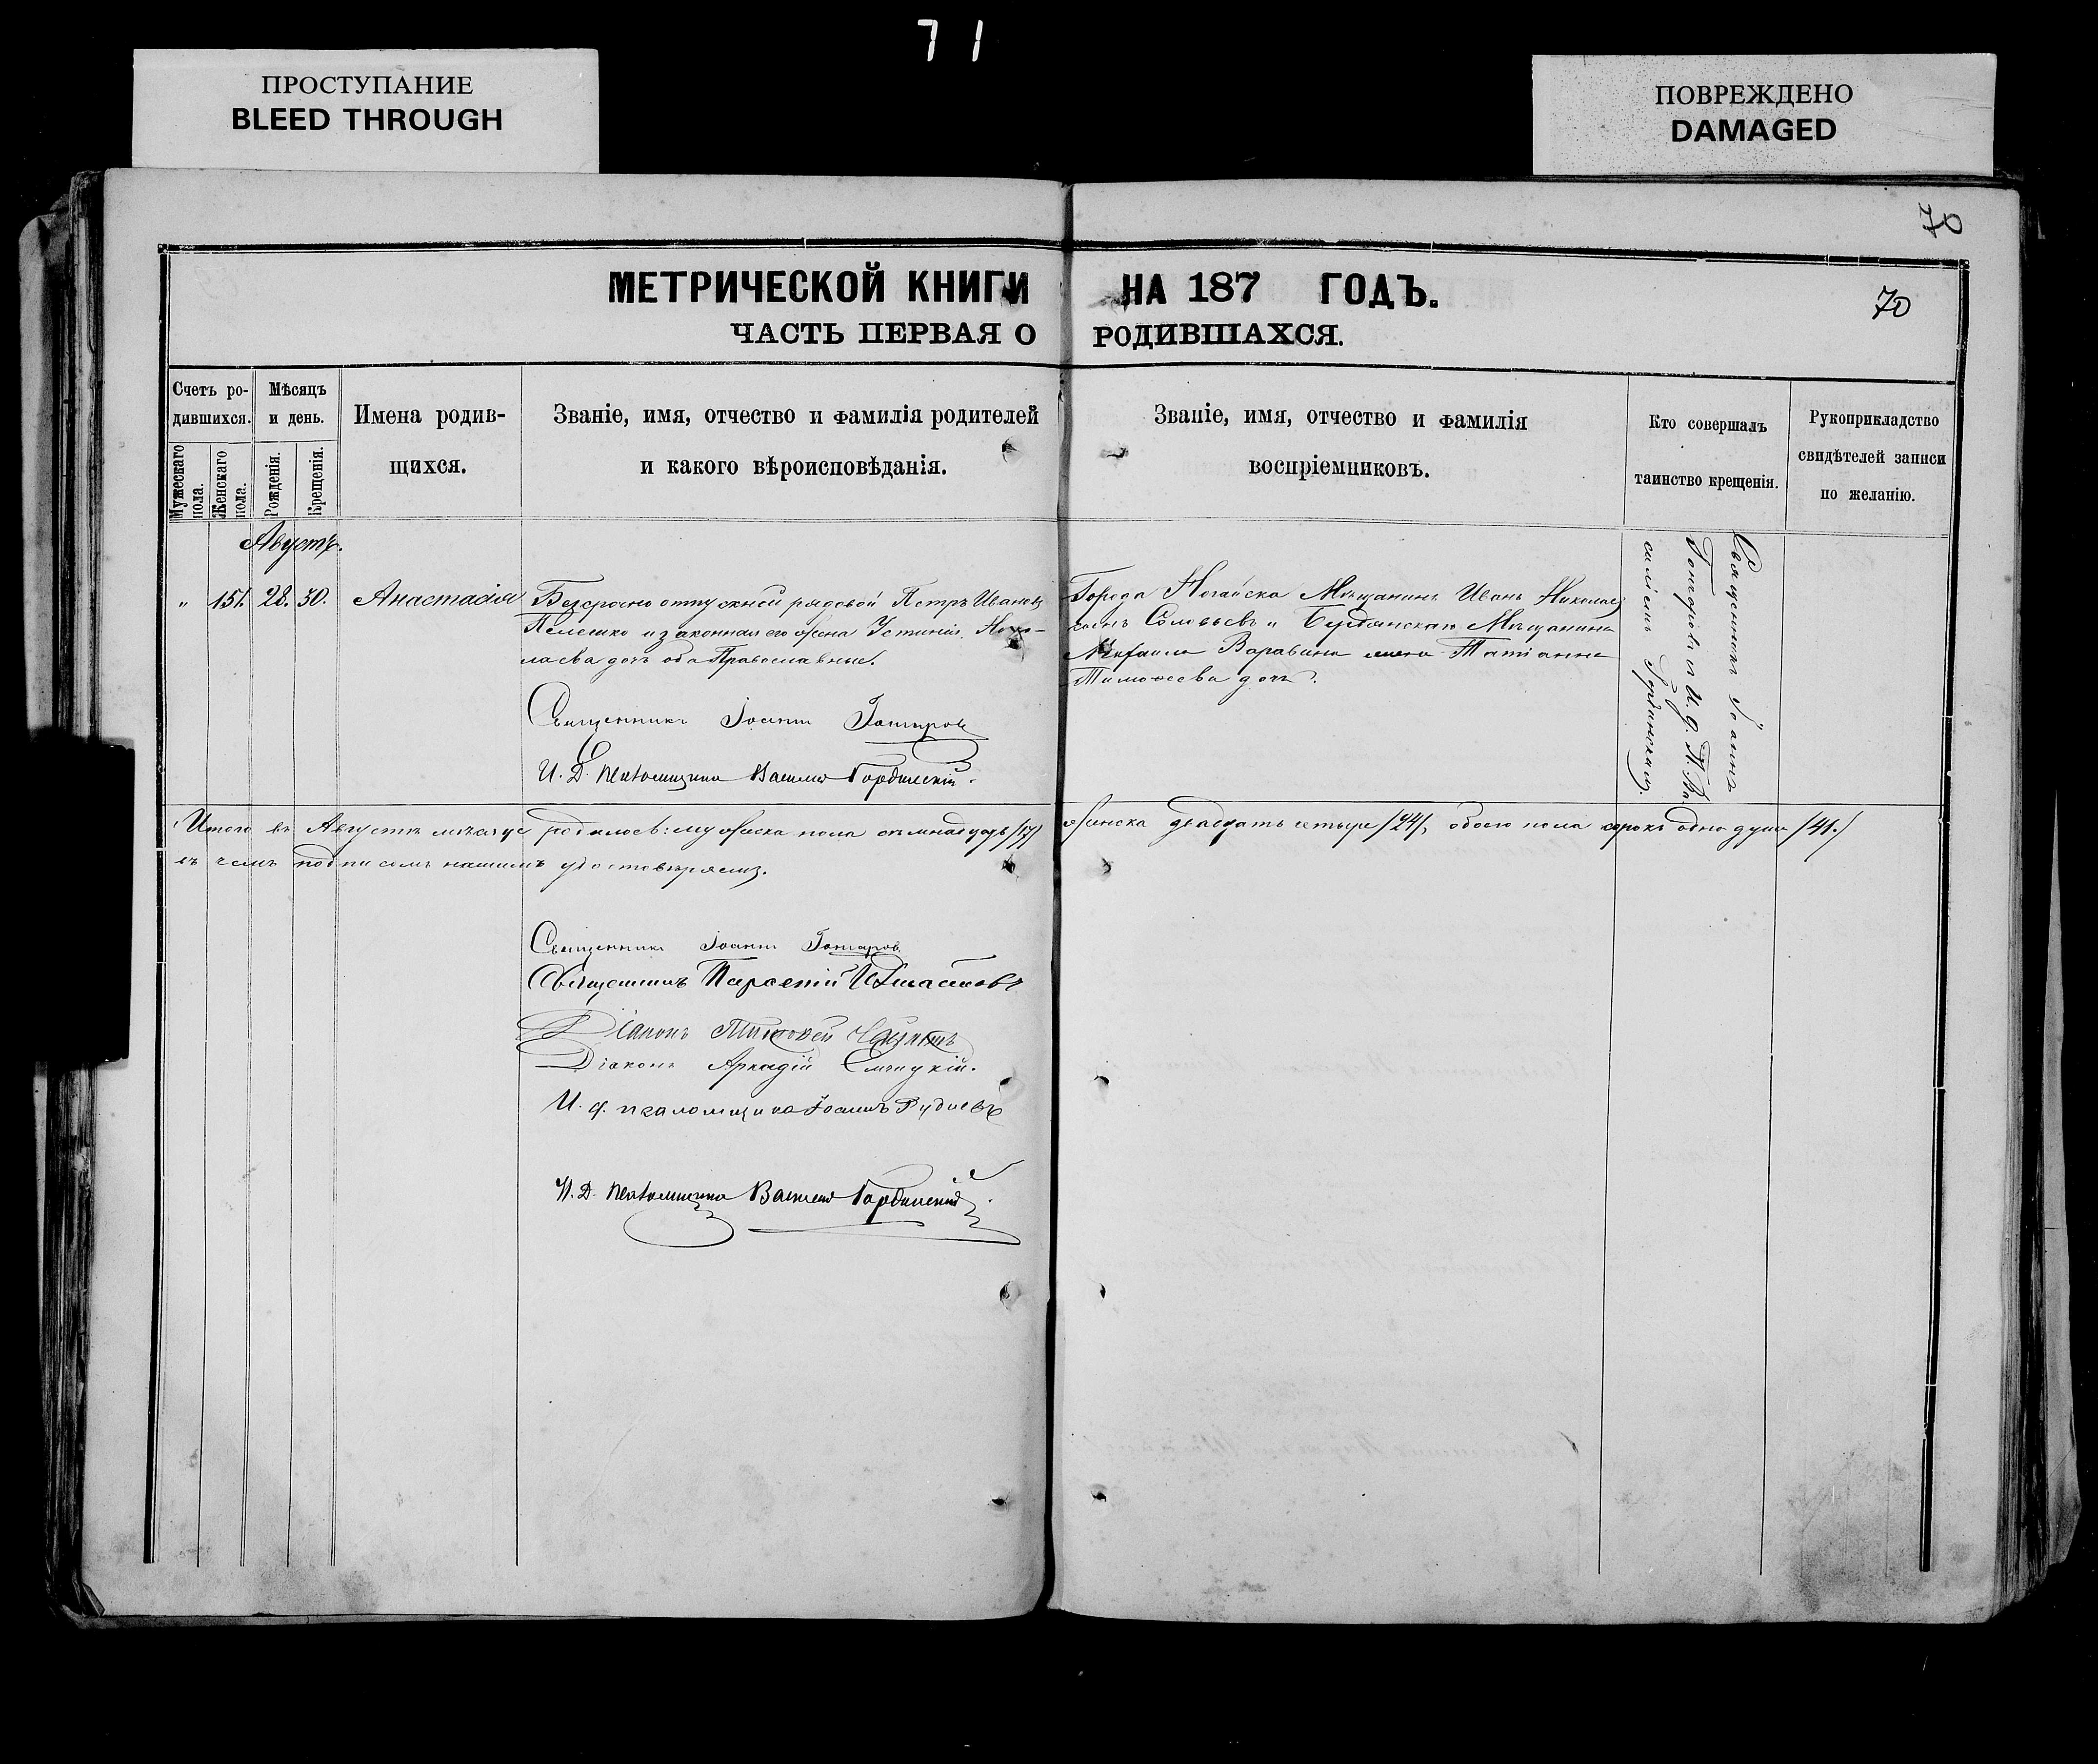 71
ПРОСТУПАНИЕ
BLEED THROUGH
ПОВРЕЖДЕНО
DAMAGED
70
МЕТРИЧЕСКОЙ КНИГИ НА 187 ГОДЪ.
70
ЧАСТЬ ПЕРВАЯ О РОДИВШАХСЯ.
Счетъ ро-
дившихся.
Мужескаго пола.
Женскаго пола.
Мѣсяцъ
и день.
Рожденія.
Крещенія.
Имена родив-
щихся.
Званіе, имя, отчество и фамилія родителей
и какого вѣроисповѣданія.
Званіе, имя, отчество и фамилія
воспріемниковъ.
Кто совершалъ
таинство крещенія.
Рукоприкладство
свидѣтелей записи
по желанію.
Августъ.
" 151. 28. 30. Анастасія
Безсрочно отпускной рядовой Петръ Ивановъ
и законная его жена Устинія Нико-
лаева дочь оба Православные.
Священникъ Іоаннъ
И. Д. Псаломщика Василій Гординскій.
Города Ногайска Мѣщанинъ Иванъ Николаев
Соловьевъ и Бердянскаго Мѣщанина
Михаила Варавина жена Татіанна
Тимофеева дочь.
Священникъ Іоаннъ
съ И. д. П. Ва-
силіемъ Гординскимъ.
Итого въ Августѣ мѣсяцѣ родилось: мужеска пола семнадцать /17/ женска двадцать четыре /24/, обоего пола сорокъ одна душа /41./
въ чемъ подписомъ нашимъ удостовѣряемъ.
Священникъ Іоаннъ
Священникъ Парѳеній
Діаконъ Тимофей
Діаконъ Аркадій
И. д. псаломщика Іоаннъ
И. Д. Псаломщика Василій Гординскій.